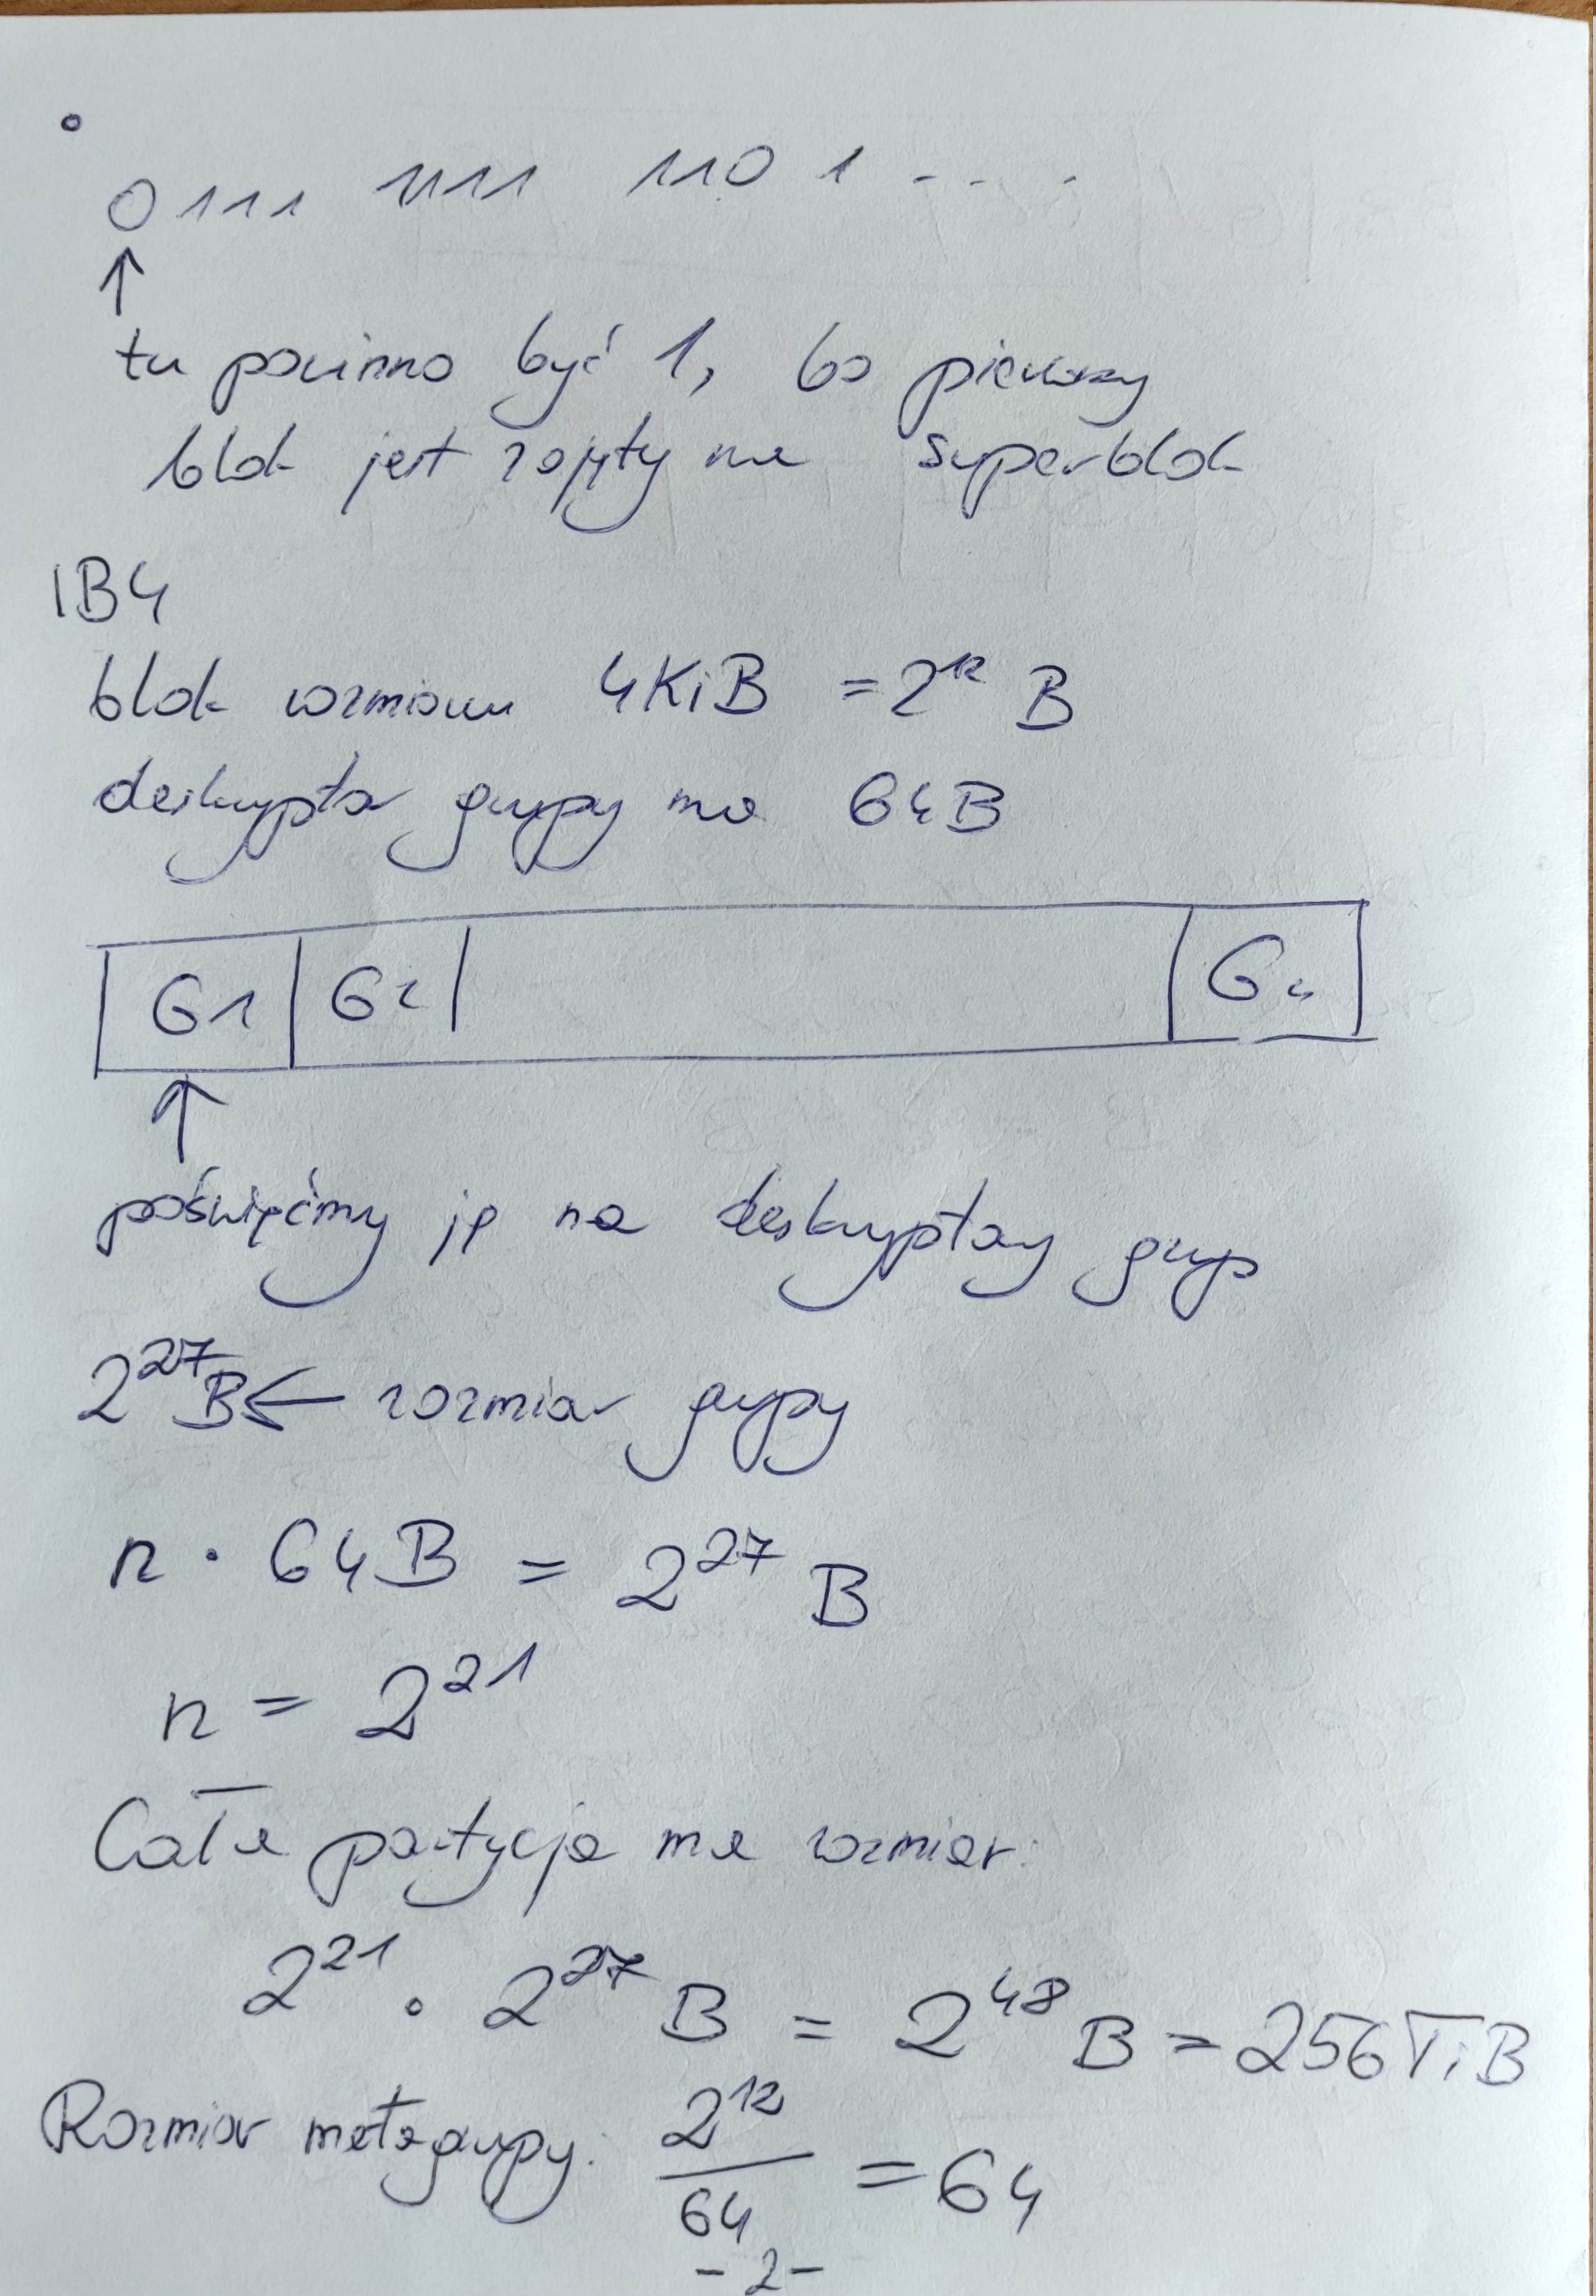 0111 1111 110 1 - - - -
↑
tu powinno być 1, bo pierwszy
blok jest zajęty na superblok
1B4
blok rozmiaru 4KiB = 2^12 B
deskryptor grupy ma 64B
G1 G2 Gn
↑
poświęćmy ją na deskryptory grup
2^27 B ← rozmiar grupy
n · 64B = 2^27 B
n = 2^21
Cała partycja ma rozmiar:
2^21 · 2^27 B = 2^48 B = 256TiB
Rozmiar metagrupy: 2^12 / 64 = 64
- 2 -